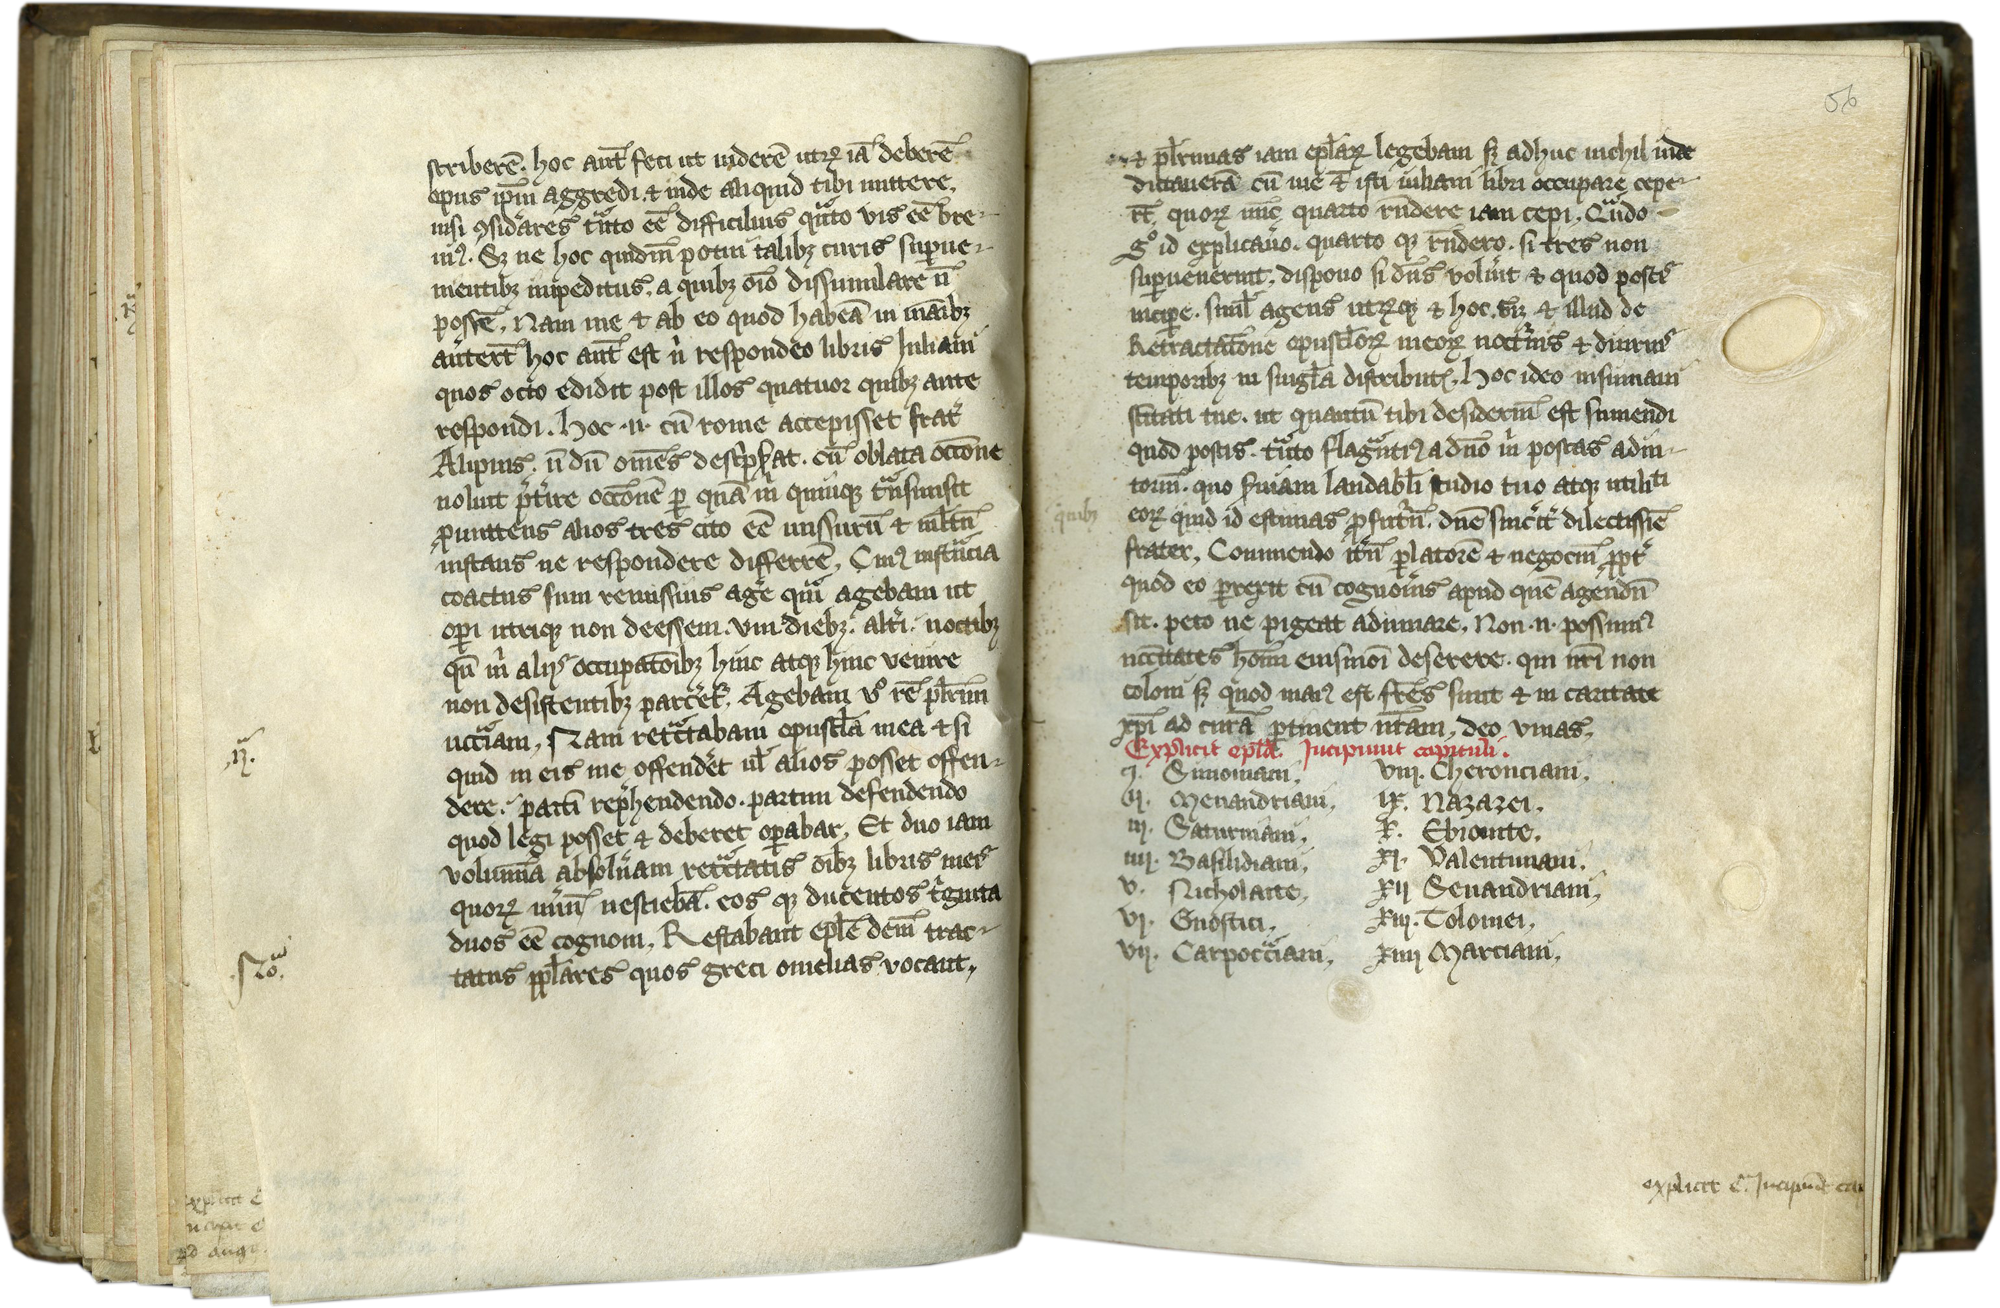 scriberē. hoc aut̄ feci ut viderē utrꝝ iā deberē
opus ip̄m aggredi. ⁊ inde aliquid tibi mittere,
nisi ꝯsid̾ares tᵃ̄to eē difficilius qᵃ̄to vis eē bre-
viꝰ. Sꝫ ne hoc quidē potui talibꝫ curis supꝰue-
nientibꝫ impeditus, a quibꝫ oīo dissimulare n̄
possē, Nam me ⁊ ab eo quod habeā in māibꝫ
aūtert̄ hoc aut̄ est ut̾ respondeo libris Iuliani
quos octo edidit post illos quatuor quibꝫ ante
respondi. hoc .n. cū rome accepisset frat̾
Alipius, n̄ dū om̄es desc̾pẜat. cū oblata occōne
noluit p̾t̾ire occōnē ꝑ quā m̾ quinqꝫ tᵃ̄nsmisit
ꝓmittens alios tres cito eē missurū ⁊ ml̄tū
instans ne respondere differrē, Cuiꝰ instᵃ̄cia
coactus sum remissius age̾ quē agebam ut
oꝑi utriqꝫ non deessem. vni diebꝫ. alt̾i. noctibꝫ
qn̄ m̾ aliis occupatōibꝫ hinc atqꝫ hinc venire
non desistentibꝫ parce̾t̾, Agebam vº rē pl̄rim̄
nccᵃ̄iam, Nam retᵃctabam opuscl̄a mea ⁊ si
quid in eis me offende̾t ul̾ alios posset offen-
dere. partī rep̾hendendo. partim defendendo
quod legi posset ⁊ deberet oꝑabar, Et duo iam
volumīa absolūam retᵃctatis oībꝫ libris meis
quorꝝ nūm̄ nesciebā. eos qꝫ ducentos t̾ginta
duos eē cognovi, Restabant epl̄e dem̄ trac-
tatus ppl̄ares quos greci omelias vocant,
.n̄.
.No.
⁊ pl̄rimas iam epl̄arꝝ legebam sꝫ adhuc nichil inde
dictaverā cū me ⁊ isti iuliani libri occupare cepe-
rt̄, quorꝝ nūc quarto rn̄dere iam cepi, Qn̄do
gº id explicavo. quarto qꝫ rn̄dero. si tres non
supꝰuenerint. dispono si dn̄s volūit ⁊ quod poscis
incipe. siml̾ agens utrꝝqꝫ ⁊ hoc. scꝫ ⁊ illud de
Retractatōne opuscl̄orꝝ meorꝝ noct̾nis ⁊ diurnis
temporibꝫ in singl̄a distributis, hoc ideo insinuavi
sc̄itati tue. ut quantū tibi desiderium est sumendi
quod poscis. tᵃ̄to flagᵃ̄tiꝰ a dn̄o m̾ poscas adiu-
torium. quo ẜviam laudabl̾i studio tuo atqꝫ utilitᵗi
eorꝝ quid id estimas ꝓfut̾um. dn̄e sinc̾it̾ dilectissīe
frater, Commendo it̾um ꝑlatorē ⁊ negocium ꝓpt̾
quod eo ꝑrexit cū cognov̾is apud quē agendū
sit. peto ne pigeat adiuvare, Non .n. possumꝰ
nccitates hoīm eiusmōi deserere. qui nr̄i non
coloni sꝫ quod maiꝰ est fr̄es sunt ⁊ in caritate
xpī ad curā ꝑtinent nr̄am, deo vivas.
Explicit epl̄a. Incipiunt capituli.
i. Simoniani. viii. Cheronciani.
ii. Menandriani. ix. Nazarei.
iii. Saturniani. x. Ebionite.
iiii. Basilidiani. xi. Valentiniani.
v. Nicholaite. xii Senandriani.
vi. Gnostici. xiii. Tolomei.
vii. Carpocᵃ̄ciani. xiiii Marciani.
56
quibꝫ
explicit e. Incipiunt ca